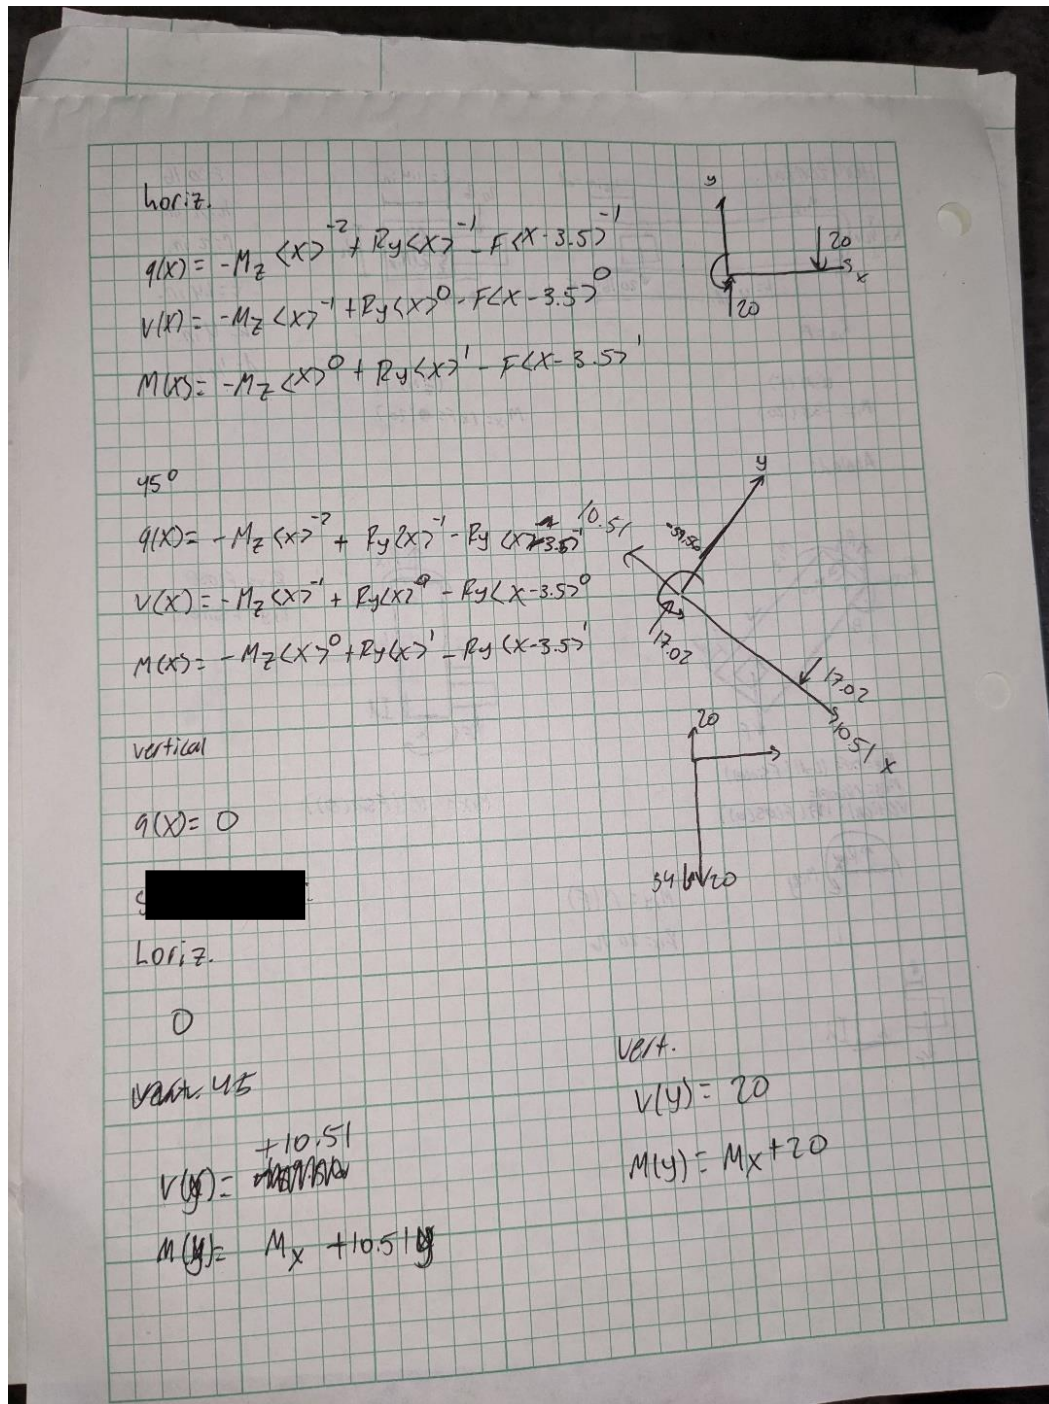 horiz.
q(x) = -Mz <x>^-2 + Ry<x>^-1 - F<x-3.5>^-1
V(x) = -Mz <x>^-1 + Ry<x>^0 - F<x-3.5>^0
M(x) = -Mz <x>^0 + Ry<x>^1 - F<x-3.5>^1
y
20
x
20
45°
q(x) = -Mz <x>^-2 + Ry<x>^-1 - Ry <x-3.5>^-1
V(x) = -Mz<x>^-1 + Ry<x>^0 - Ry<x-3.5>^0
M(x) = -Mz<x>^0 + Ry<x>^1 - Ry<x-3.5>^1
y
10.51
17.02
17.02
10.51
x
vertical
q(x) = 0
20
20
horiz.
0
45
V(y) = +10.51
M(y) = Mx + 10.51y
vert.
V(y) = 20
M(y) = Mx + 20